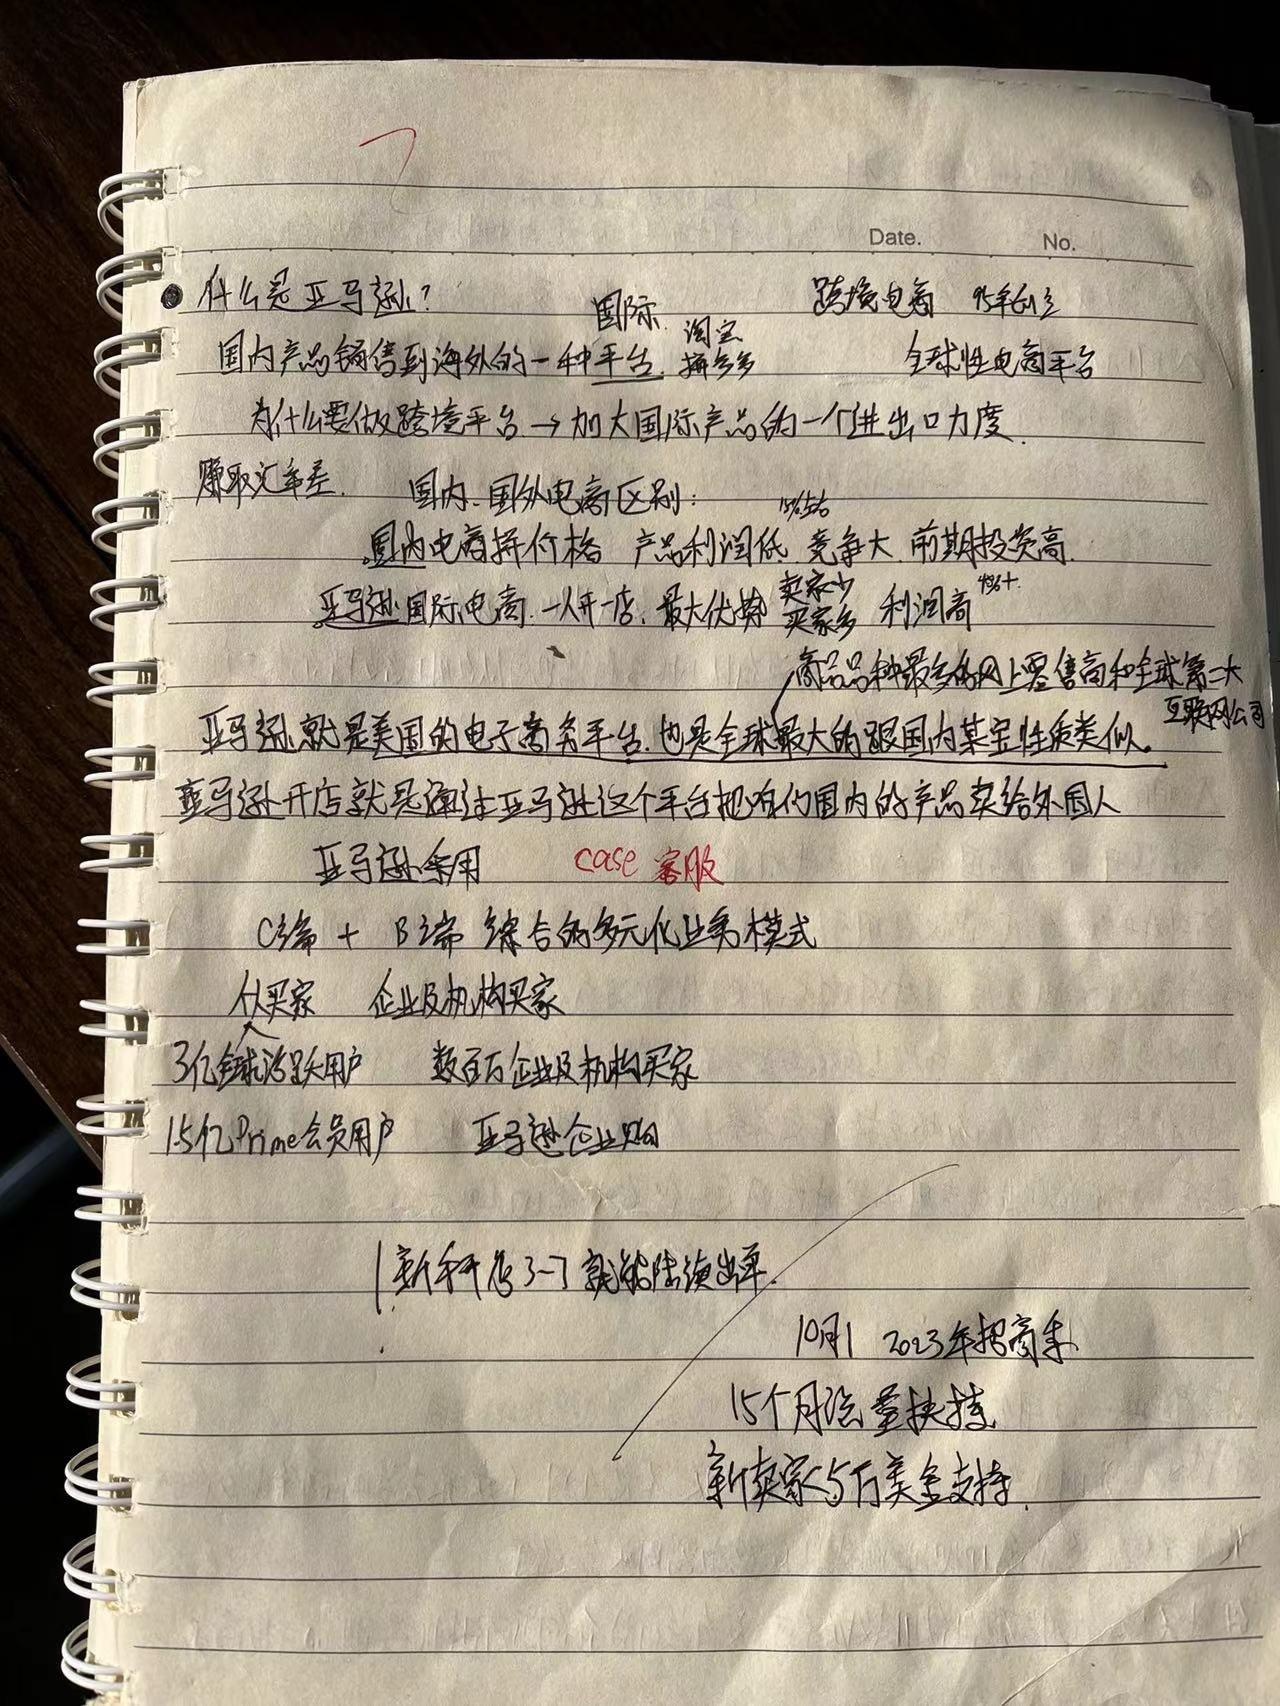 Date. No.
什么是亚马逊? 跨境电商 95年创立
国际 淘宝
国内产品销售到海外的一种平台. 拼多多 全球性电商平台
为什么要做跨境平台 → 加大国际产品的一个进出口力度.
赚取汇率差. 国内、国外电商区别:
国内电商拼价格 产品利润低 竞争大 前期投资高.
亚马逊国际电商. 一人开一店. 最大优势 卖家少 买家多 利润高
商品品种最多的网上零售商和全球第二大
互联网公司
亚马逊就是美国的电子商务平台. 也是全球最大的跟国内某宝性质类似。
亚马逊开店就是通过亚马逊这个平台把咱们国内的产品卖给外国人
亚马逊采用 case 客服
C端 + B端 综合的多元化业务模式
个人买家 企业及机构买家
3亿全球活跃用户 数百万企业及机构买家
1.5亿Prime会员用户 亚马逊企业购
就能陆续出单.
10月1 2023年招商季
15个月流量扶持
新卖家<5万美金支持.